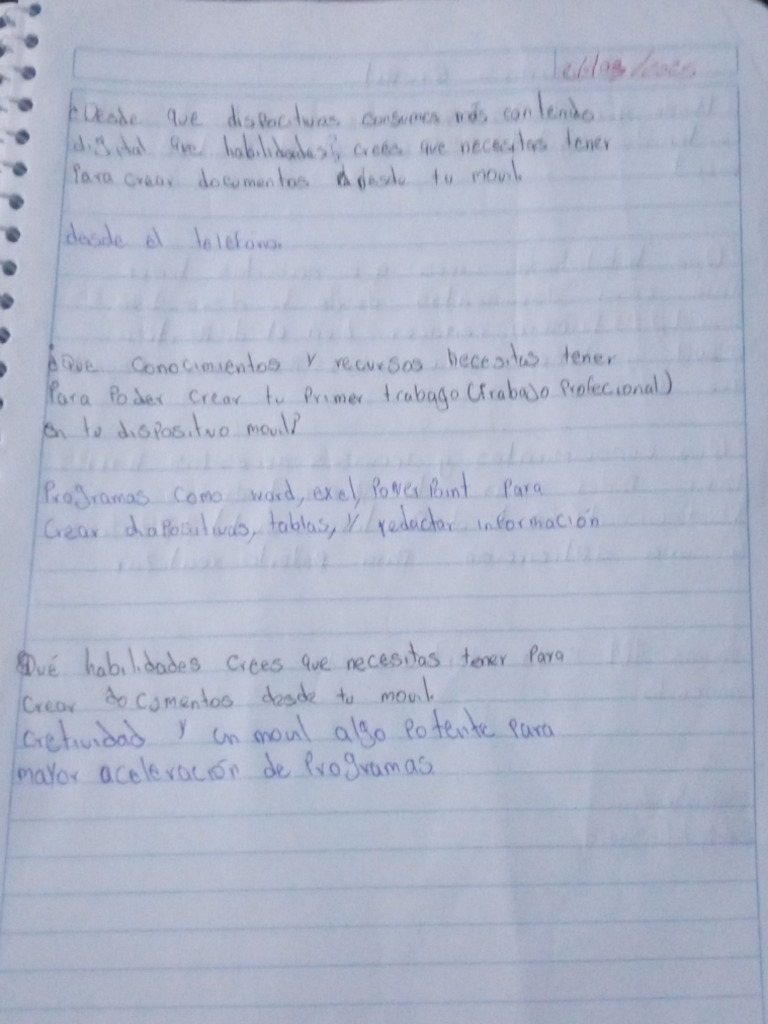 Desde que dispocitivos consumes más contenido
digital que habilidades crees que necesitas tener
Para crear documentos desde tu movil
desde el telefono.
Que conocimientos y recursos necesitas tener
Para Poder crear tu Primer trabago (trabajo Profecional)
en tu dispositivo movil?
Programas como word, exel, Power Point Para
Crear diapositivas, tablas, y redactar información
Qué habilidades crees que necesitas tener Para
Crear documentos desde tu movil.
Cretividad y un movil algo Potente Para
mayor aceleración de Programas.